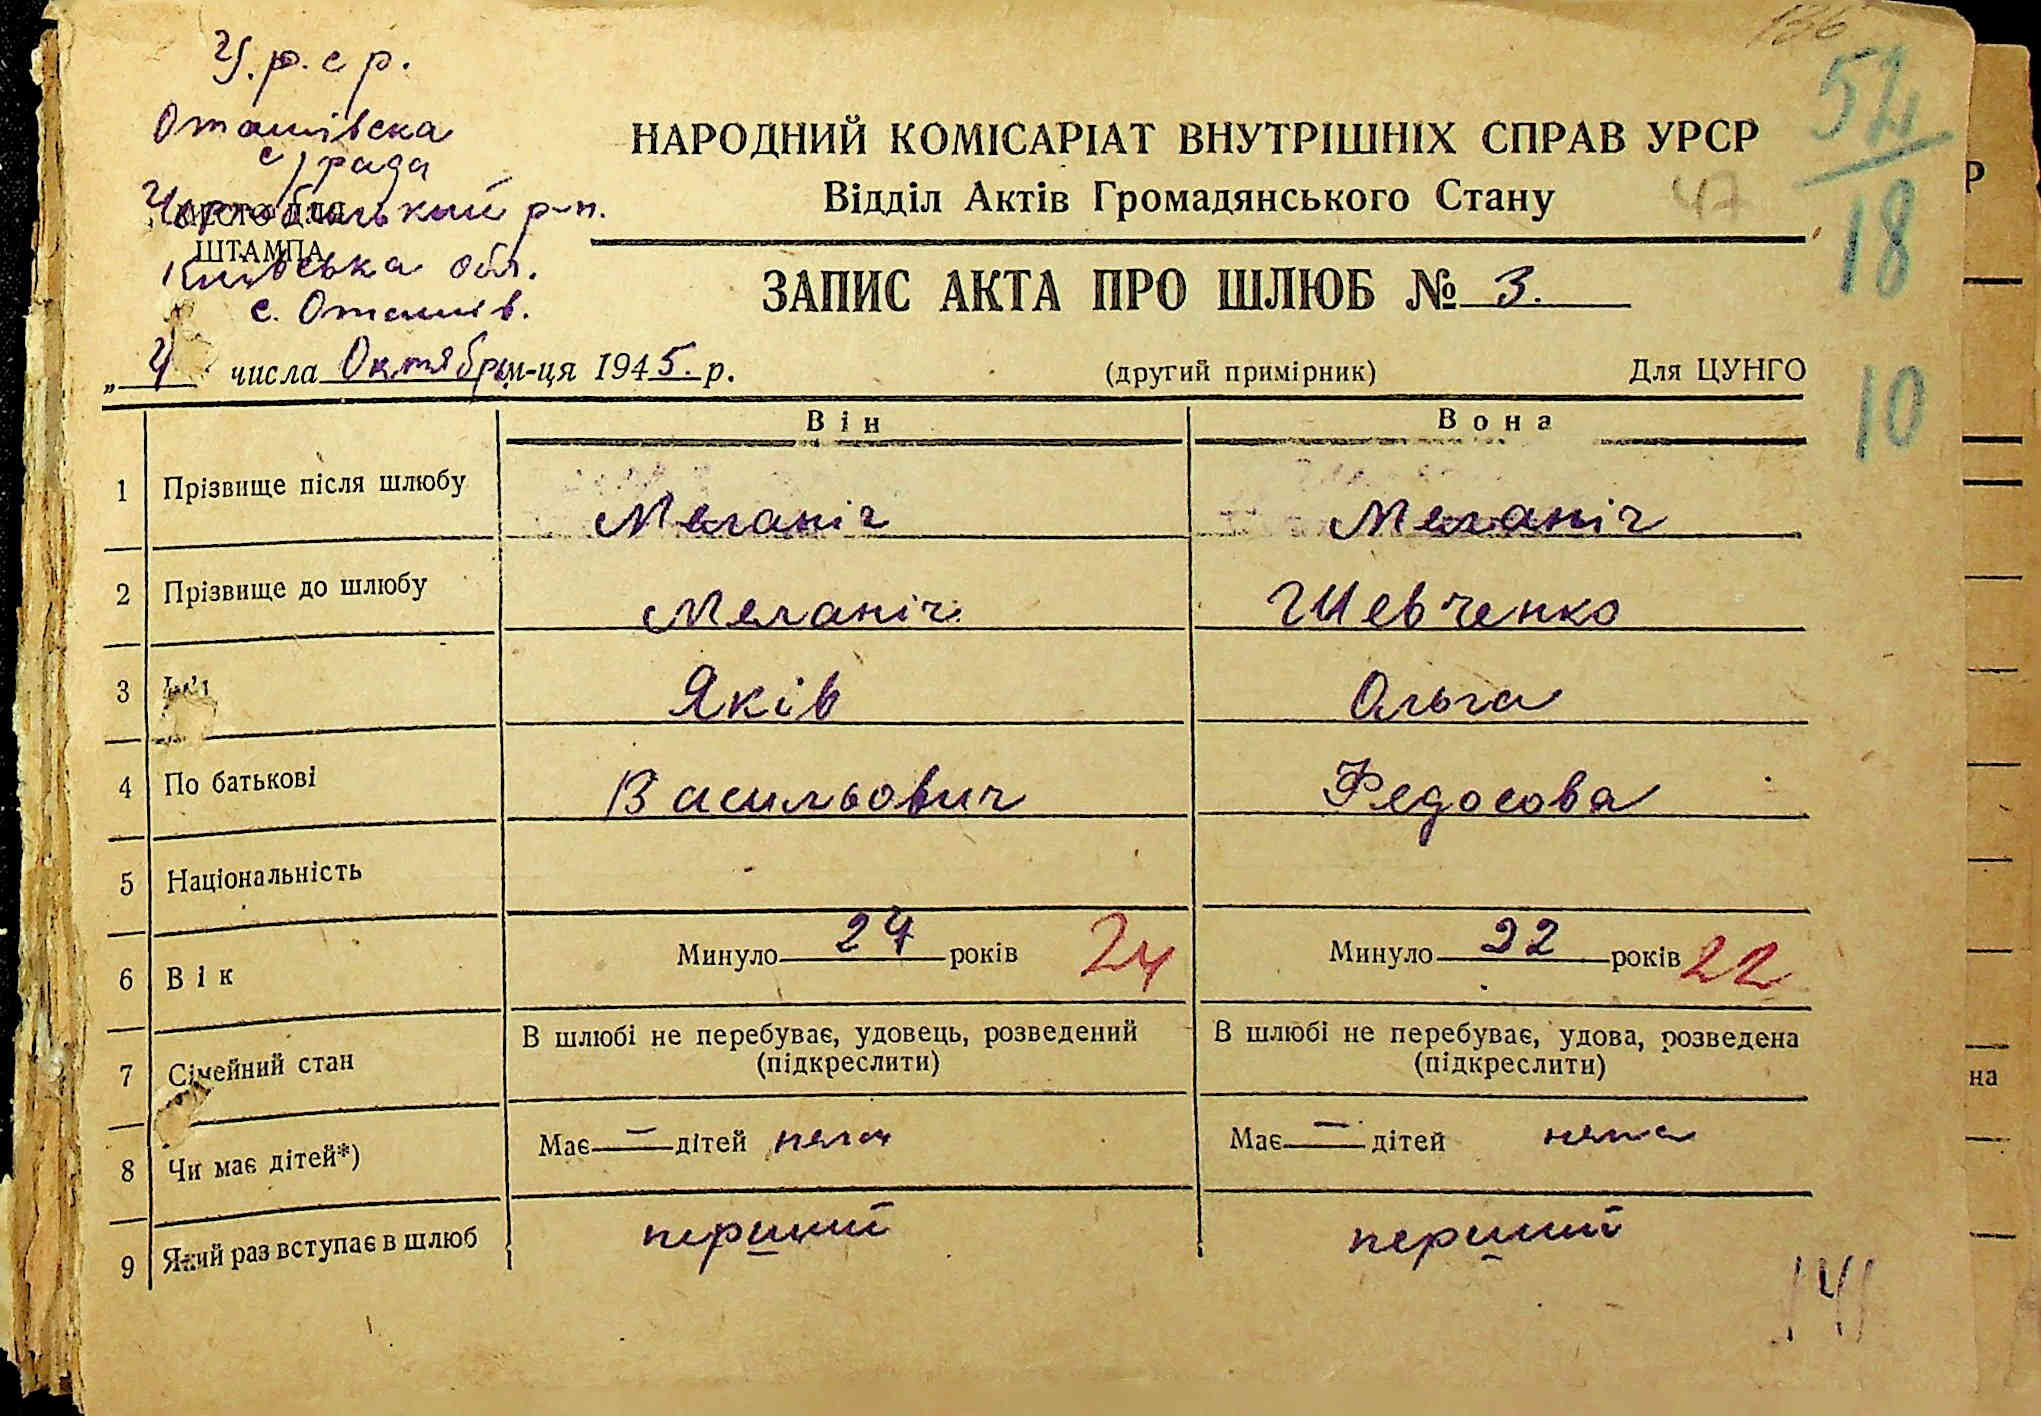 У.р.с р.
Оташівска
с/рада
Чорнобильський р-н.
МІСЦЕ ДЛЯ
ШТАМПА
Київська обл.
с. Оташів.
136
54
18
10
47
НАРОДНИЙ КОМІСАРІАТ ВНУТРІШНІХ СПРАВ УРСР
Відділ Актів Громадянського Стану
ЗАПИС АКТА ПРО ШЛЮБ № 3.
„ 4 числа Октября м-ця 1945. р.
(другий примірник) Для ЦУНГО
Він Вона
1 Прізвище після шлюбу Меланіч Меланіч
2 Прізвище до шлюбу Меланіч Шевченко
3 Ім'я Яків Ольга
4 По батькові Васильович Федосова
5 Національність
6 Вік Минуло 24 років 24 Минуло 22 років 22
7 Сімейний стан В шлюбі не перебуває, удовець, розведений (підкреслити) В шлюбі не перебуває, удова, розведена (підкреслити)
8 Чи має дітей*) Має — дітей нема Має — дітей нема
9 Який раз вступає в шлюб перший перший
Р
на